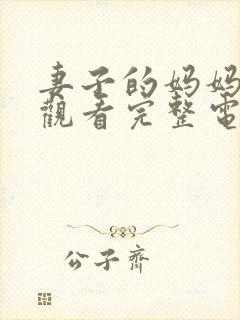 妻子的妈妈
觀看完整電
公子齊